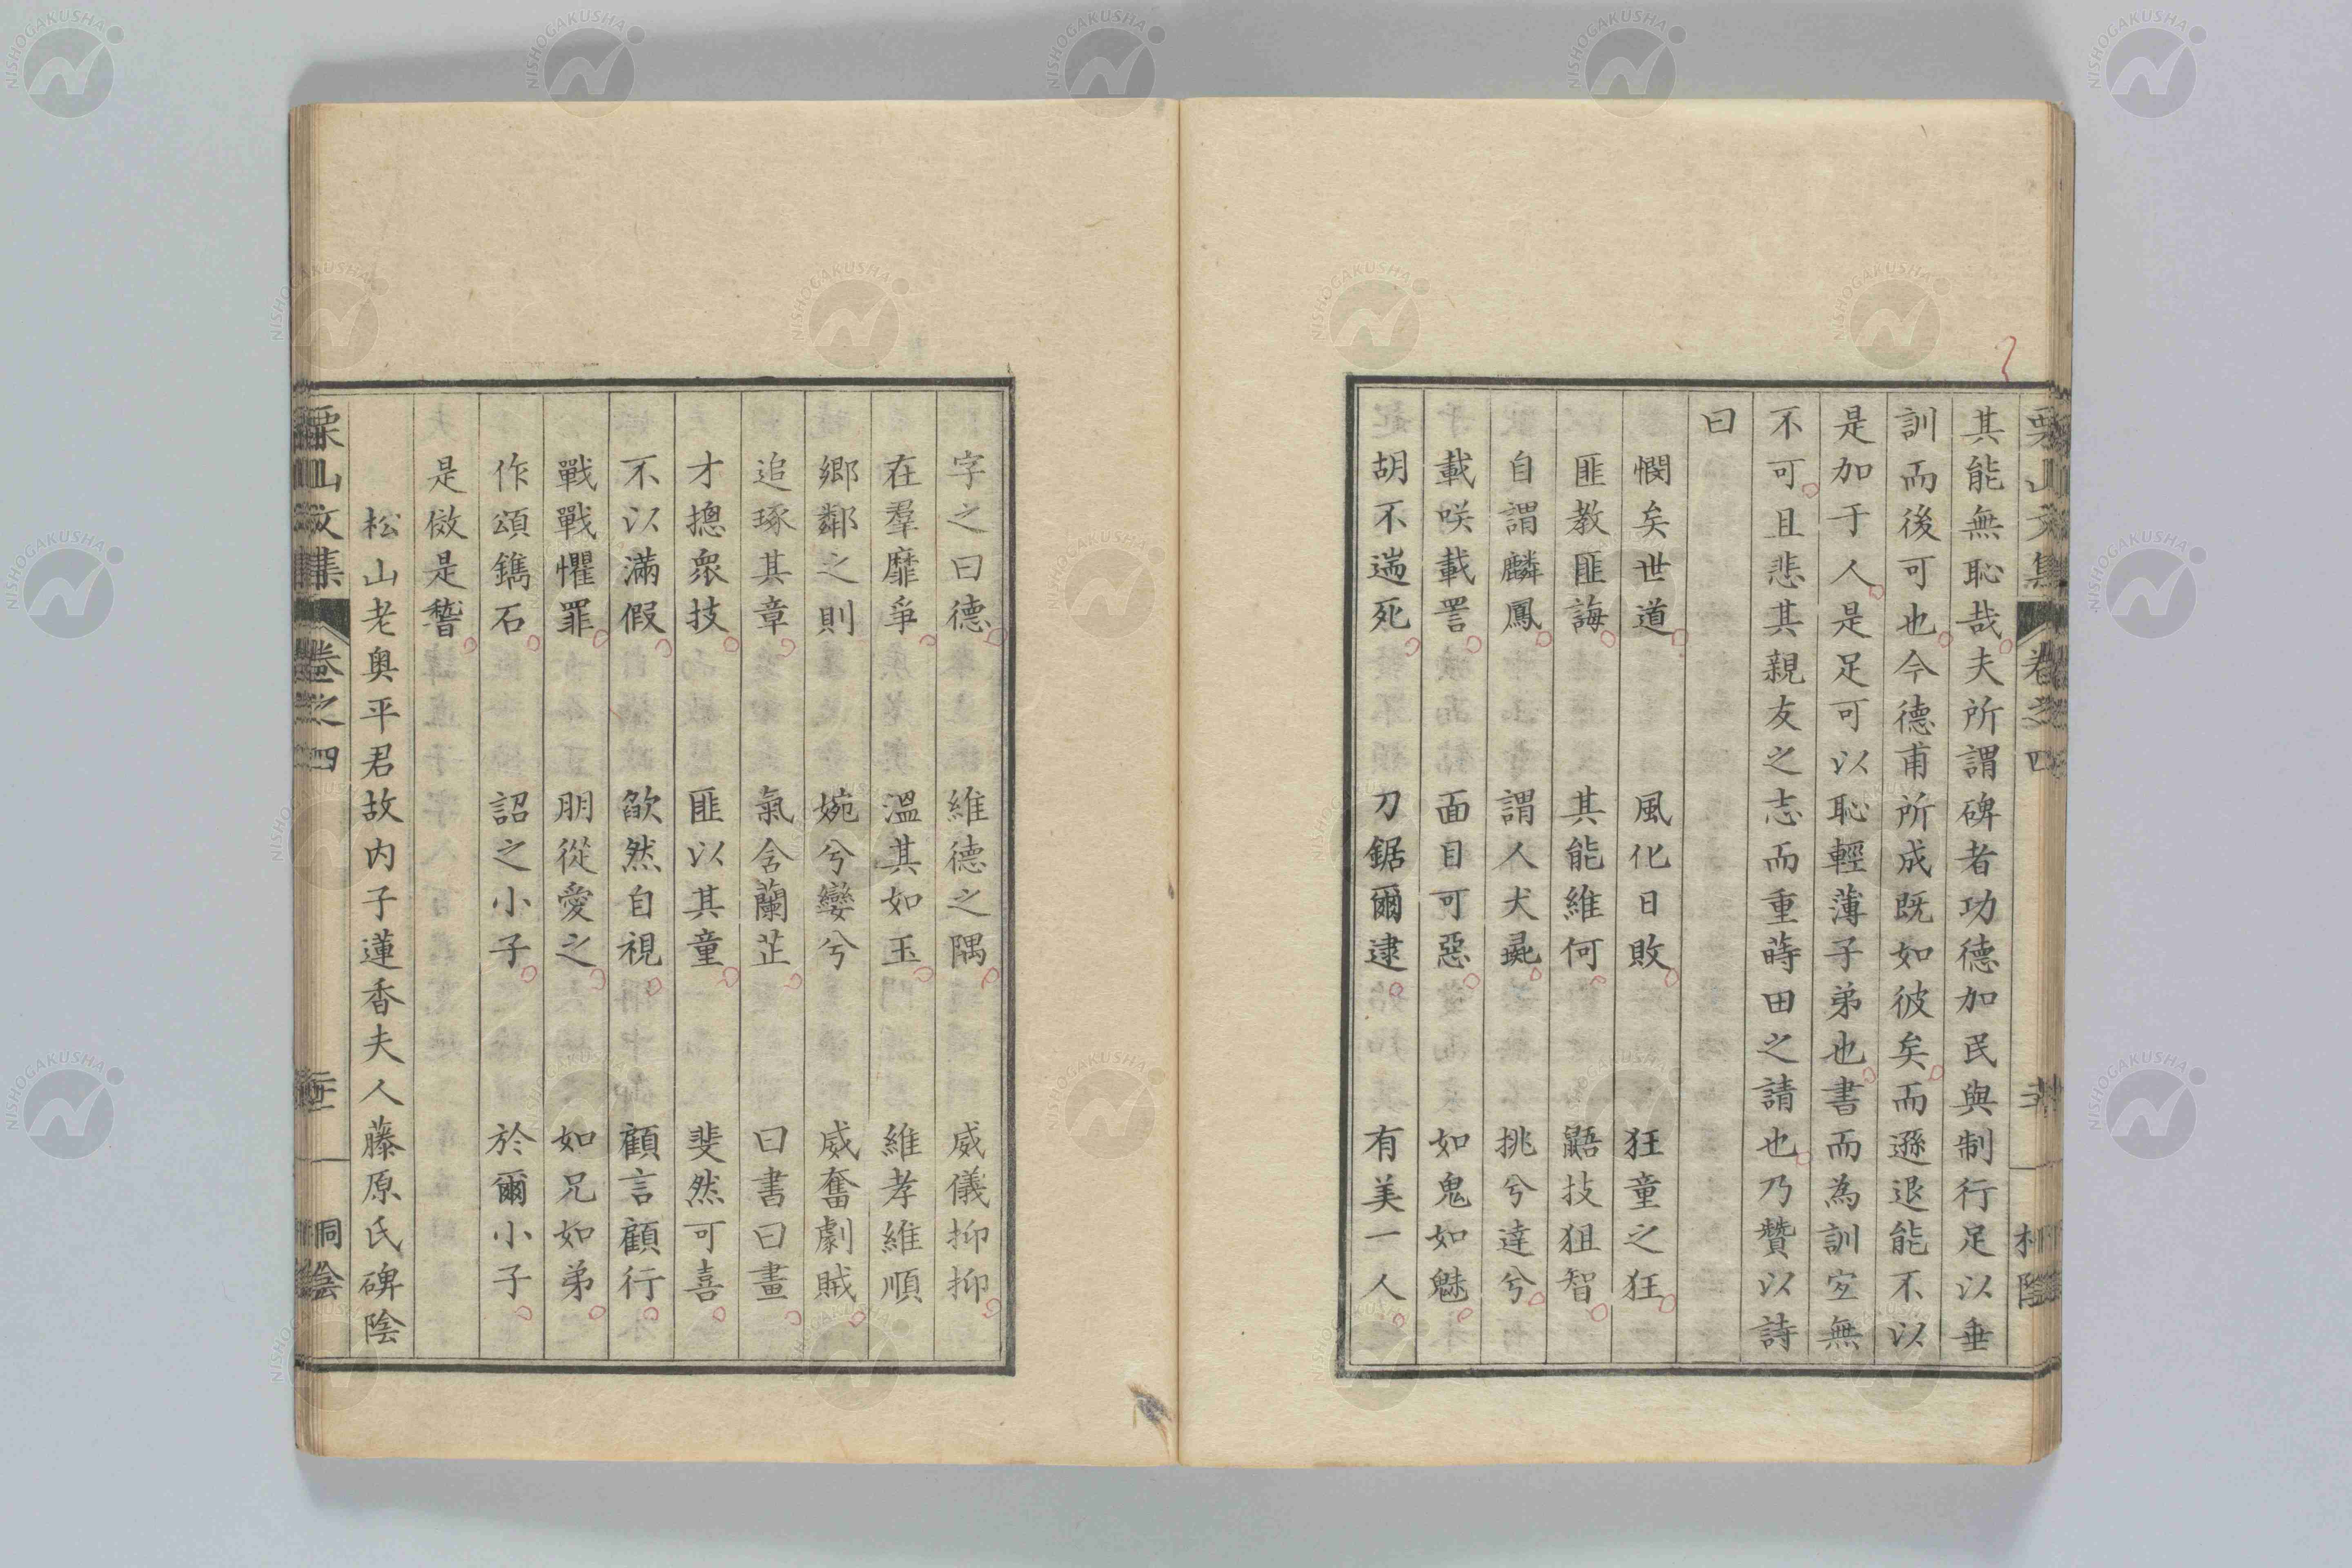 其能無恥哉夫所謂碑者功德加民與制行足以垂
訓而後可也今德甫所成既如彼矣而遜退能不以
是加于人是足可以恥輕薄子弟也書而為訓宐無
不可且悲其親友之志而重蒔田之請也乃贊以詩
曰
憫矣世道　風化日敗　狂童之狂
匪教匪誨　其能維何　鼯技狙智
自謂麟鳳　謂人犬彘　挑兮達兮
載咲載詈　面目可惡　如鬼如魅
胡不遄死　刀鋸爾逮　有美一人
字之曰德　維德之隅　威儀抑抑
在羣靡爭　溫其如玉　維孝維順
鄉鄰之則　婉兮孌兮　威奮劇賊
追琢其章　氣含蘭芷　曰書曰畫
才摠衆技　匪以其童　斐然可喜
不以滿假　欿然自視　顧言顧行
戰戰懼罪　朋從愛之　如兄如弟
作頌鐫石　詔之小子　於爾小子
是傚是諬
松山老奧平君故内子蓮香夫人藤原氏碑陰
栗山文集　卷之四
NISHOGAKUSHA